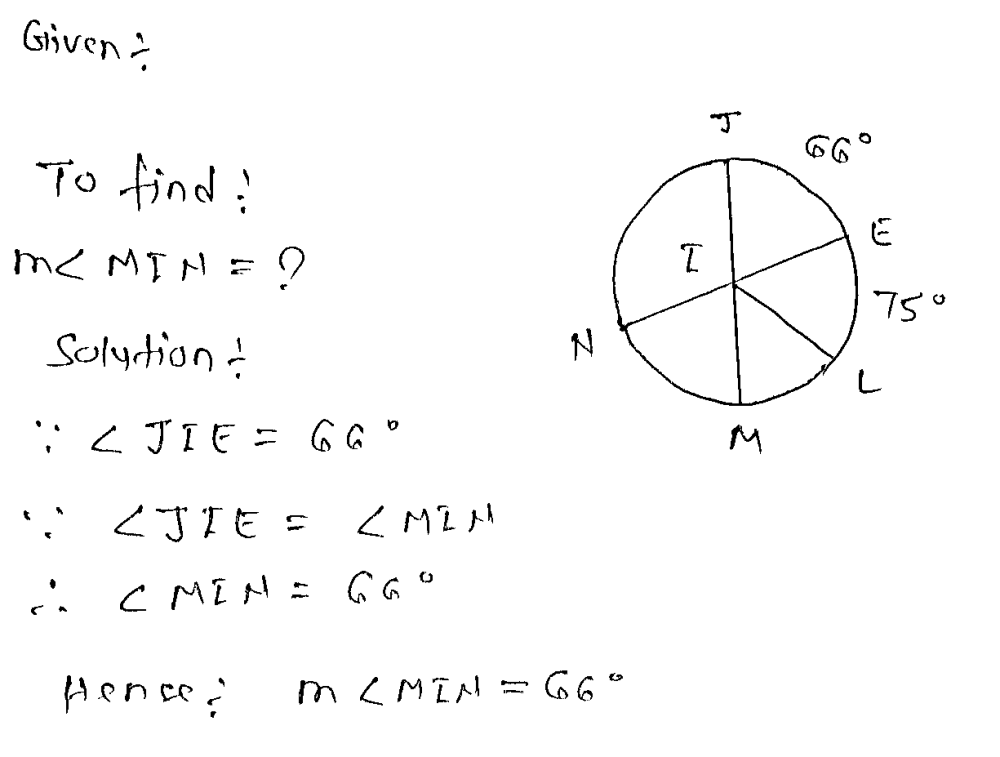 Given ÷
To find :
m∠ MIN = ?
Solution ÷
∵ ∠ JIE = 66°
∵ ∠JIE = ∠MIN
∴ ∠ MIN = 66°
Hence ÷ m ∠MIN = 66°
J
66°
E
I
75°
N
L
M